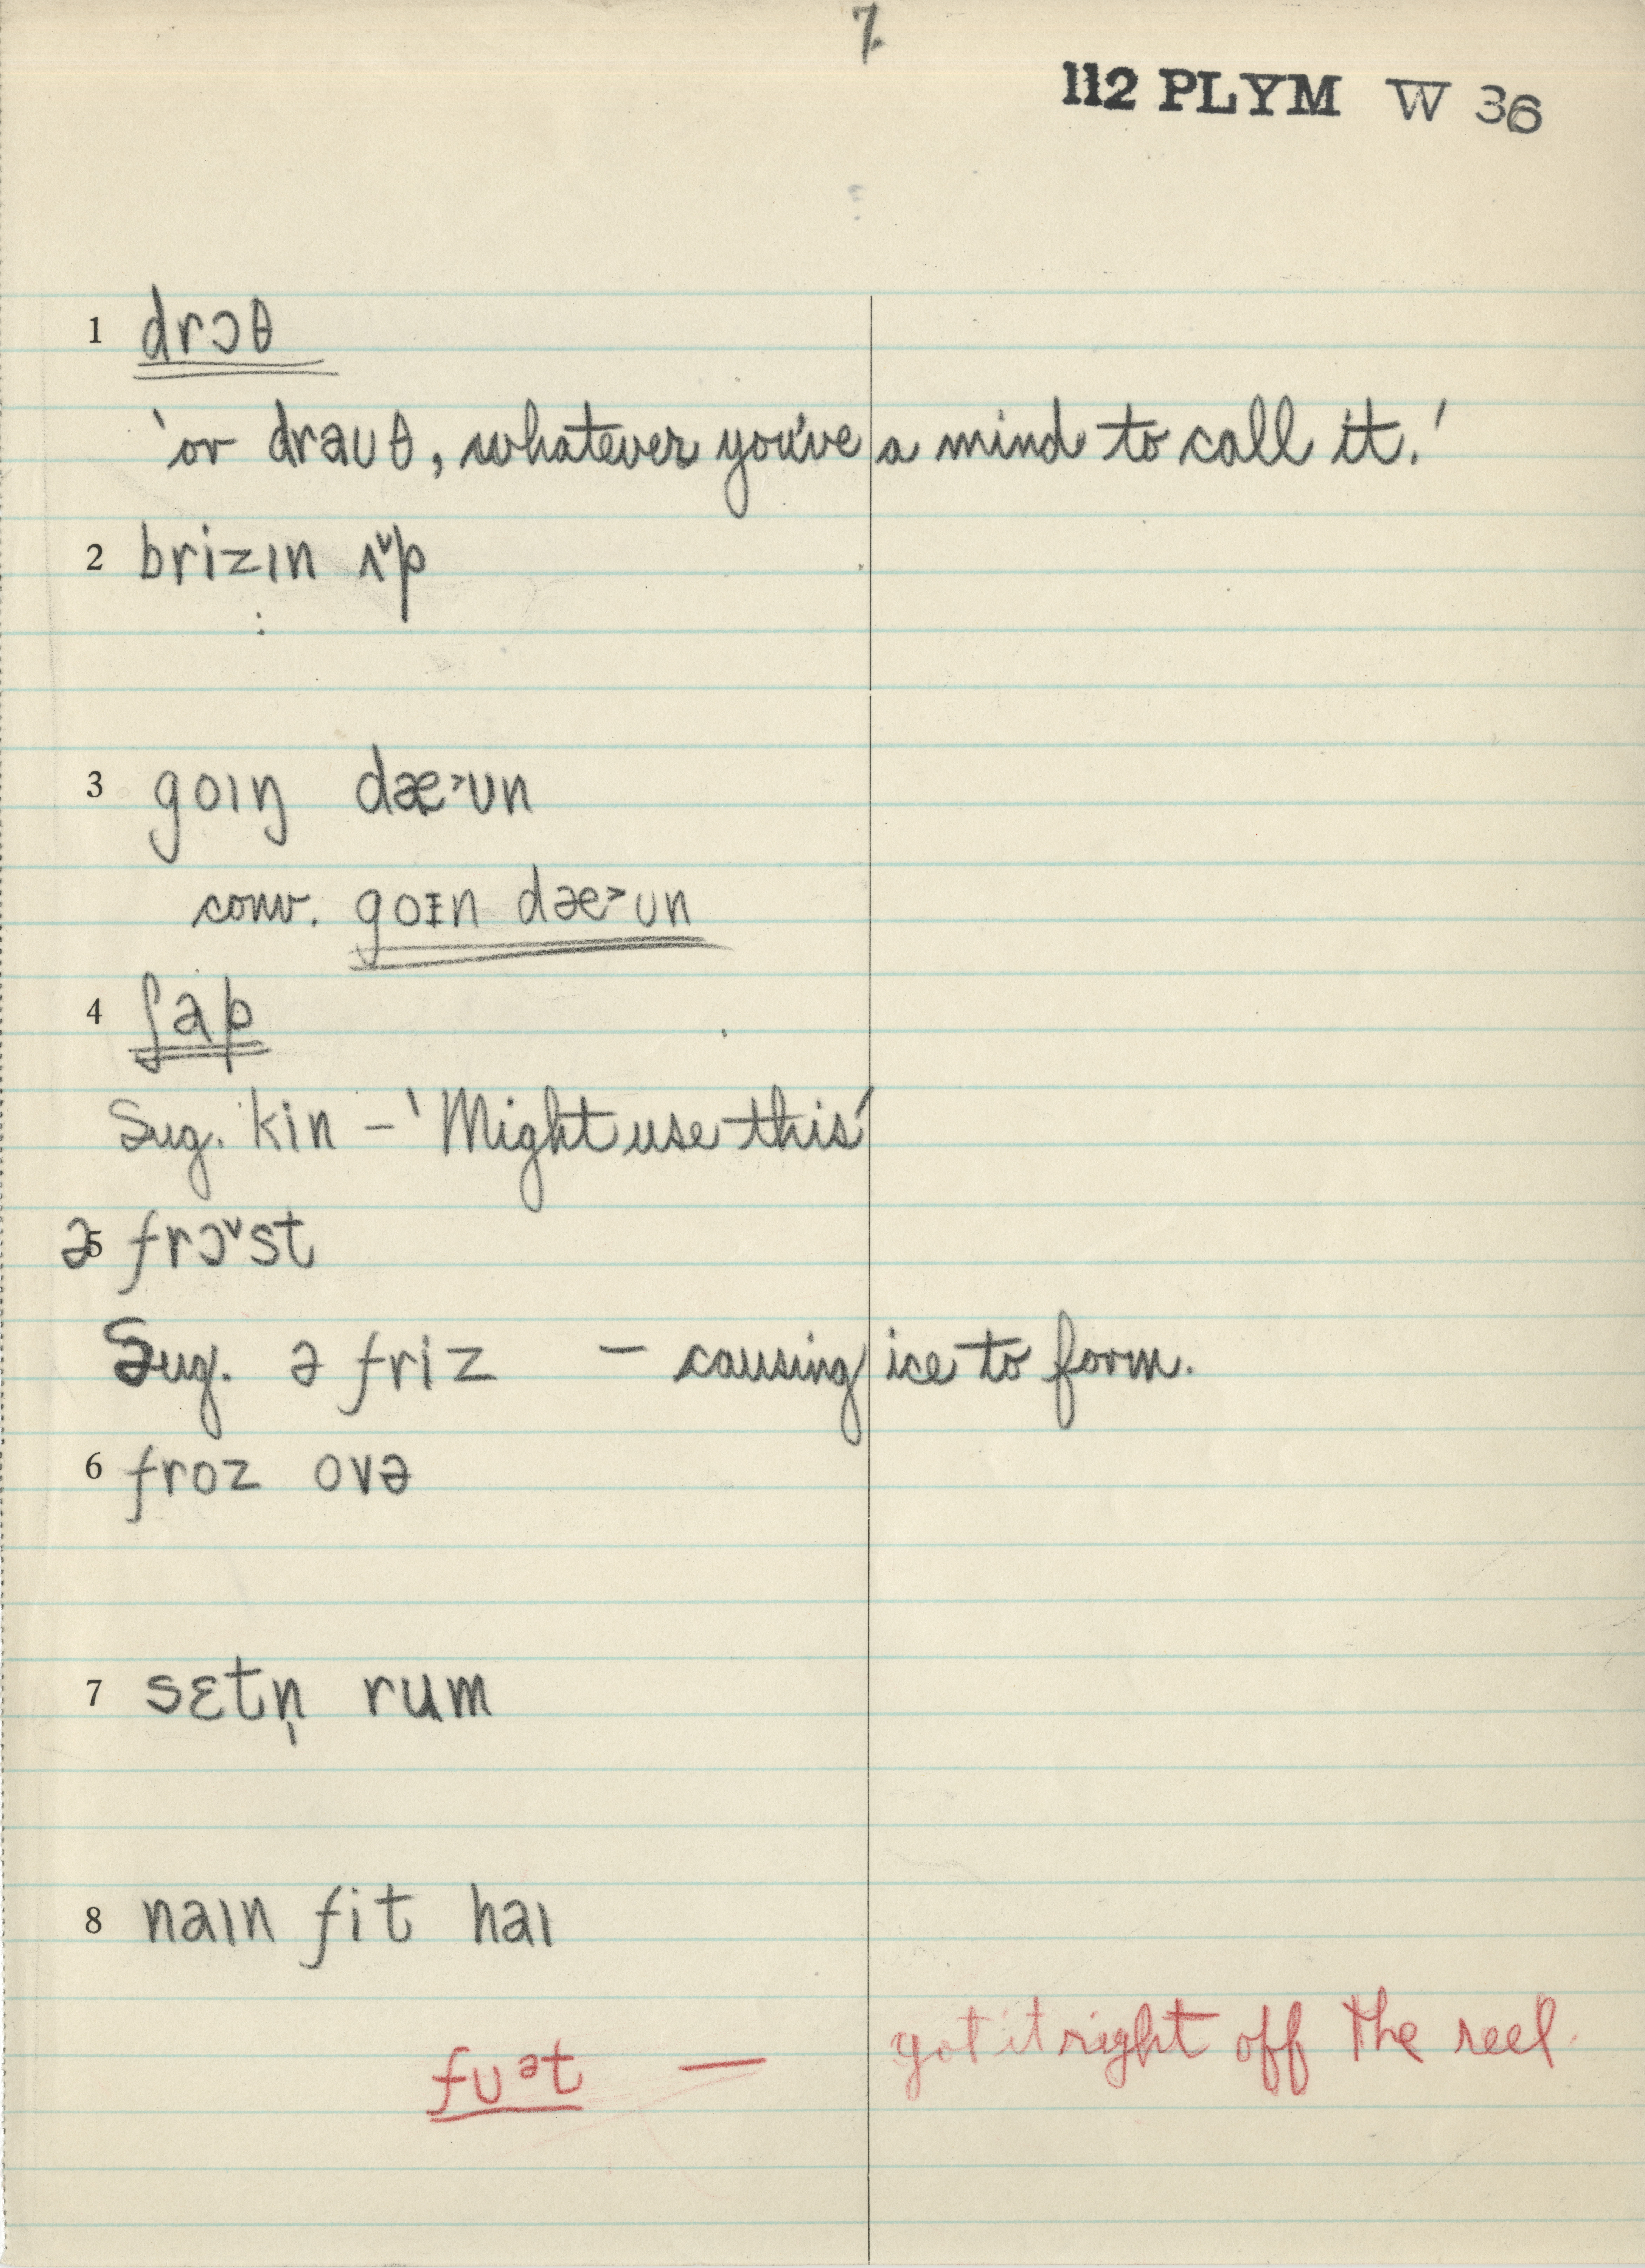 7.
112 PLYM W 36
1 drɔθ
'or draʊθ, whatever you've a mind to call it.'
2 brizɪn ʌ˅p
3 goɪŋ dæ˃ʊn
conv. goɪn dæ˃ʊn
4 ʃap
Sug. kin – 'Might use this'
5 ə frɔ˅st
Sug. ə friz – causing ice to form.
6 froz ovə
7 sɛtn̩ rum
8 naɪn fit haɪ
fʊᵊt — got it right off the reel.